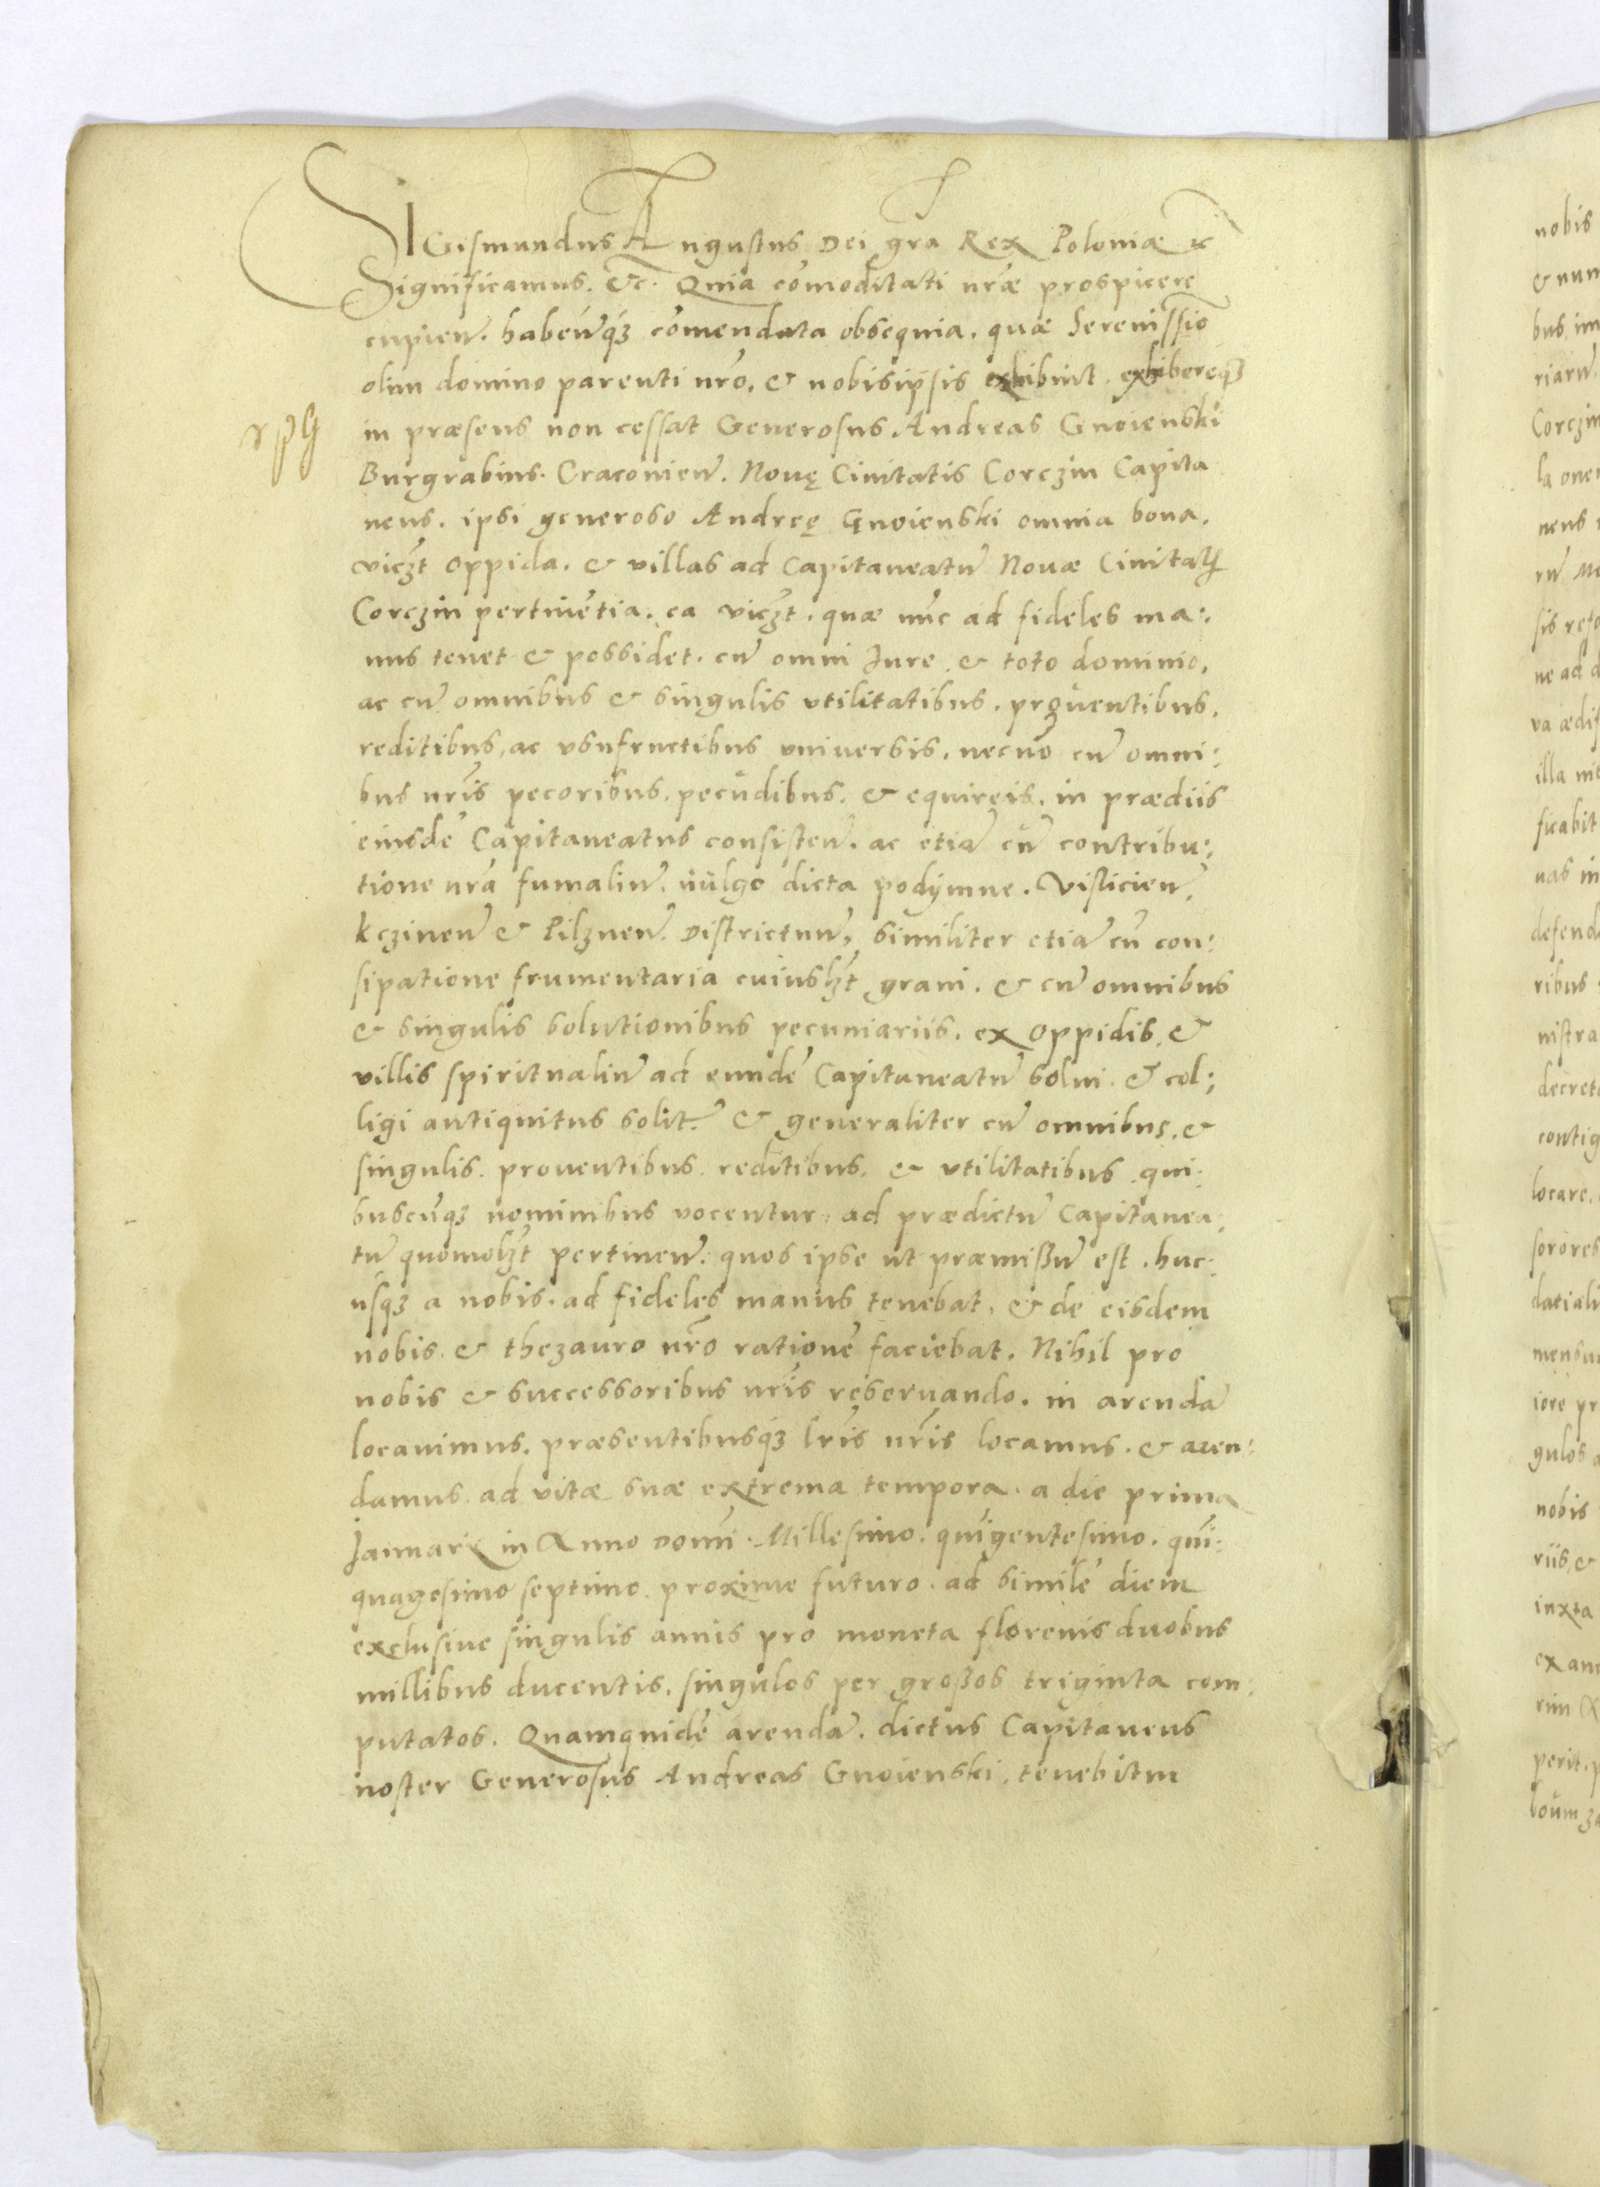 SIGismundus Augustus Dei gra Rex Poloniæ &c
Significamus. &c. Quia comoditati nræ prospicere
cupien. habenqz comendata obsequia. quæ Serenissio
olim domino parenti nro, & nobisipsis exhibuit. exhibereqz
in præsens non cessat Generosus Andreas Gnoienski
Burgrabius. Cracouien. Nouę Ciuitatis Corczin Capita
neus. ipsi generoso Andreę Gnoienski omnia bona.
viczt oppida. & villas ad Capitaneatu Nouæ Ciuitatis
Corczin pertinetia. ea viczt. quæ nuc ad fideles ma:
nus tenet & possidet. cu omni Jure & toto dominio,
ac cu omnibus & singulis vtilitatibus. prouentibus.
reditibus, ac vsufructibus vniuersis. necno cu omni:
bus nris pecoribus. pecudibus. & equireis. in prædiis
eiusde Capitaneatus consisten. ac etia cu contribu:
tione nra fumaliu. uulgo dicta podymne. Vislicien,
kczinen & Pilznen. Districtuu, similiter etia cu con:
sipatione frumentaria cuiuslzt grani. & cu omnibus
& singulis solutionibus pecuniariis. ex oppidis, &
villis spiritualiu ad eunde Capitaneatu solui. & col:
ligi antiquitus solit. & generaliter cu omnibus. &
singulis. prouentibus. reditibus. & vtilitatibus. qui:
buscuqz nominibus vocentur. ad prædictu Capitanea:
tu quomolzt pertinen. quos ipse ut præmissu est. huc:
usqz a nobis. ad fideles manus tenebat. & de eisdem
nobis. & thezauro nro ratione faciebat. Nihil pro
nobis & successoribus nris reseruando. in arenda
locauimus. præsentibusqz lris nris locamus. & aren:
damus. ad vitæ suæ extrema tempora. a die prima
Januarii in Anno domi. Millesimo. quigentesimo. qui:
quagesimo septimo. proxime futuro. ad simile diem
exclusiue singulis annis pro moneta florenis duobus
millibus ducentis, singulos per grossos triginta com:
putatos. Quamquide arenda. dictus Capitaneus
noster Generosus Andreas Gnoienski, tenebitur
nobis
& num
bus, im
riaru.
Corczin
la oner
neus
ru
sis
ne ad d
va ædif
illa
ficabit
uas in
defend
ribus
nistra
decret
contig
locare.
sorores
daciali
mensur
iore pr
gulos a
nobis
riis, &
iuxta
ex
perit.